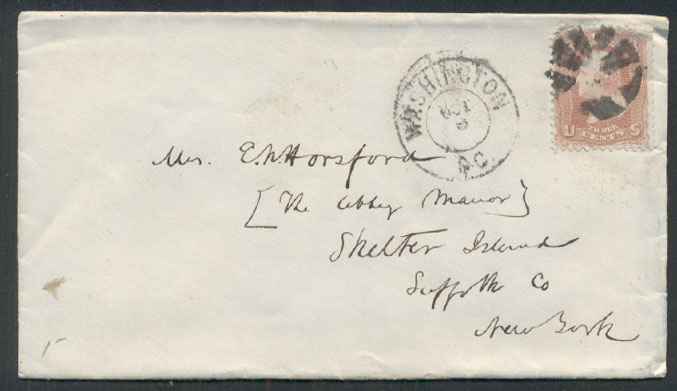 WASHINGTON
D.C.
U THREE S
CENTS
Mrs. E. N. Horsford
[The Abbey Manor]
Shelter Island
Suffolk Co
New York